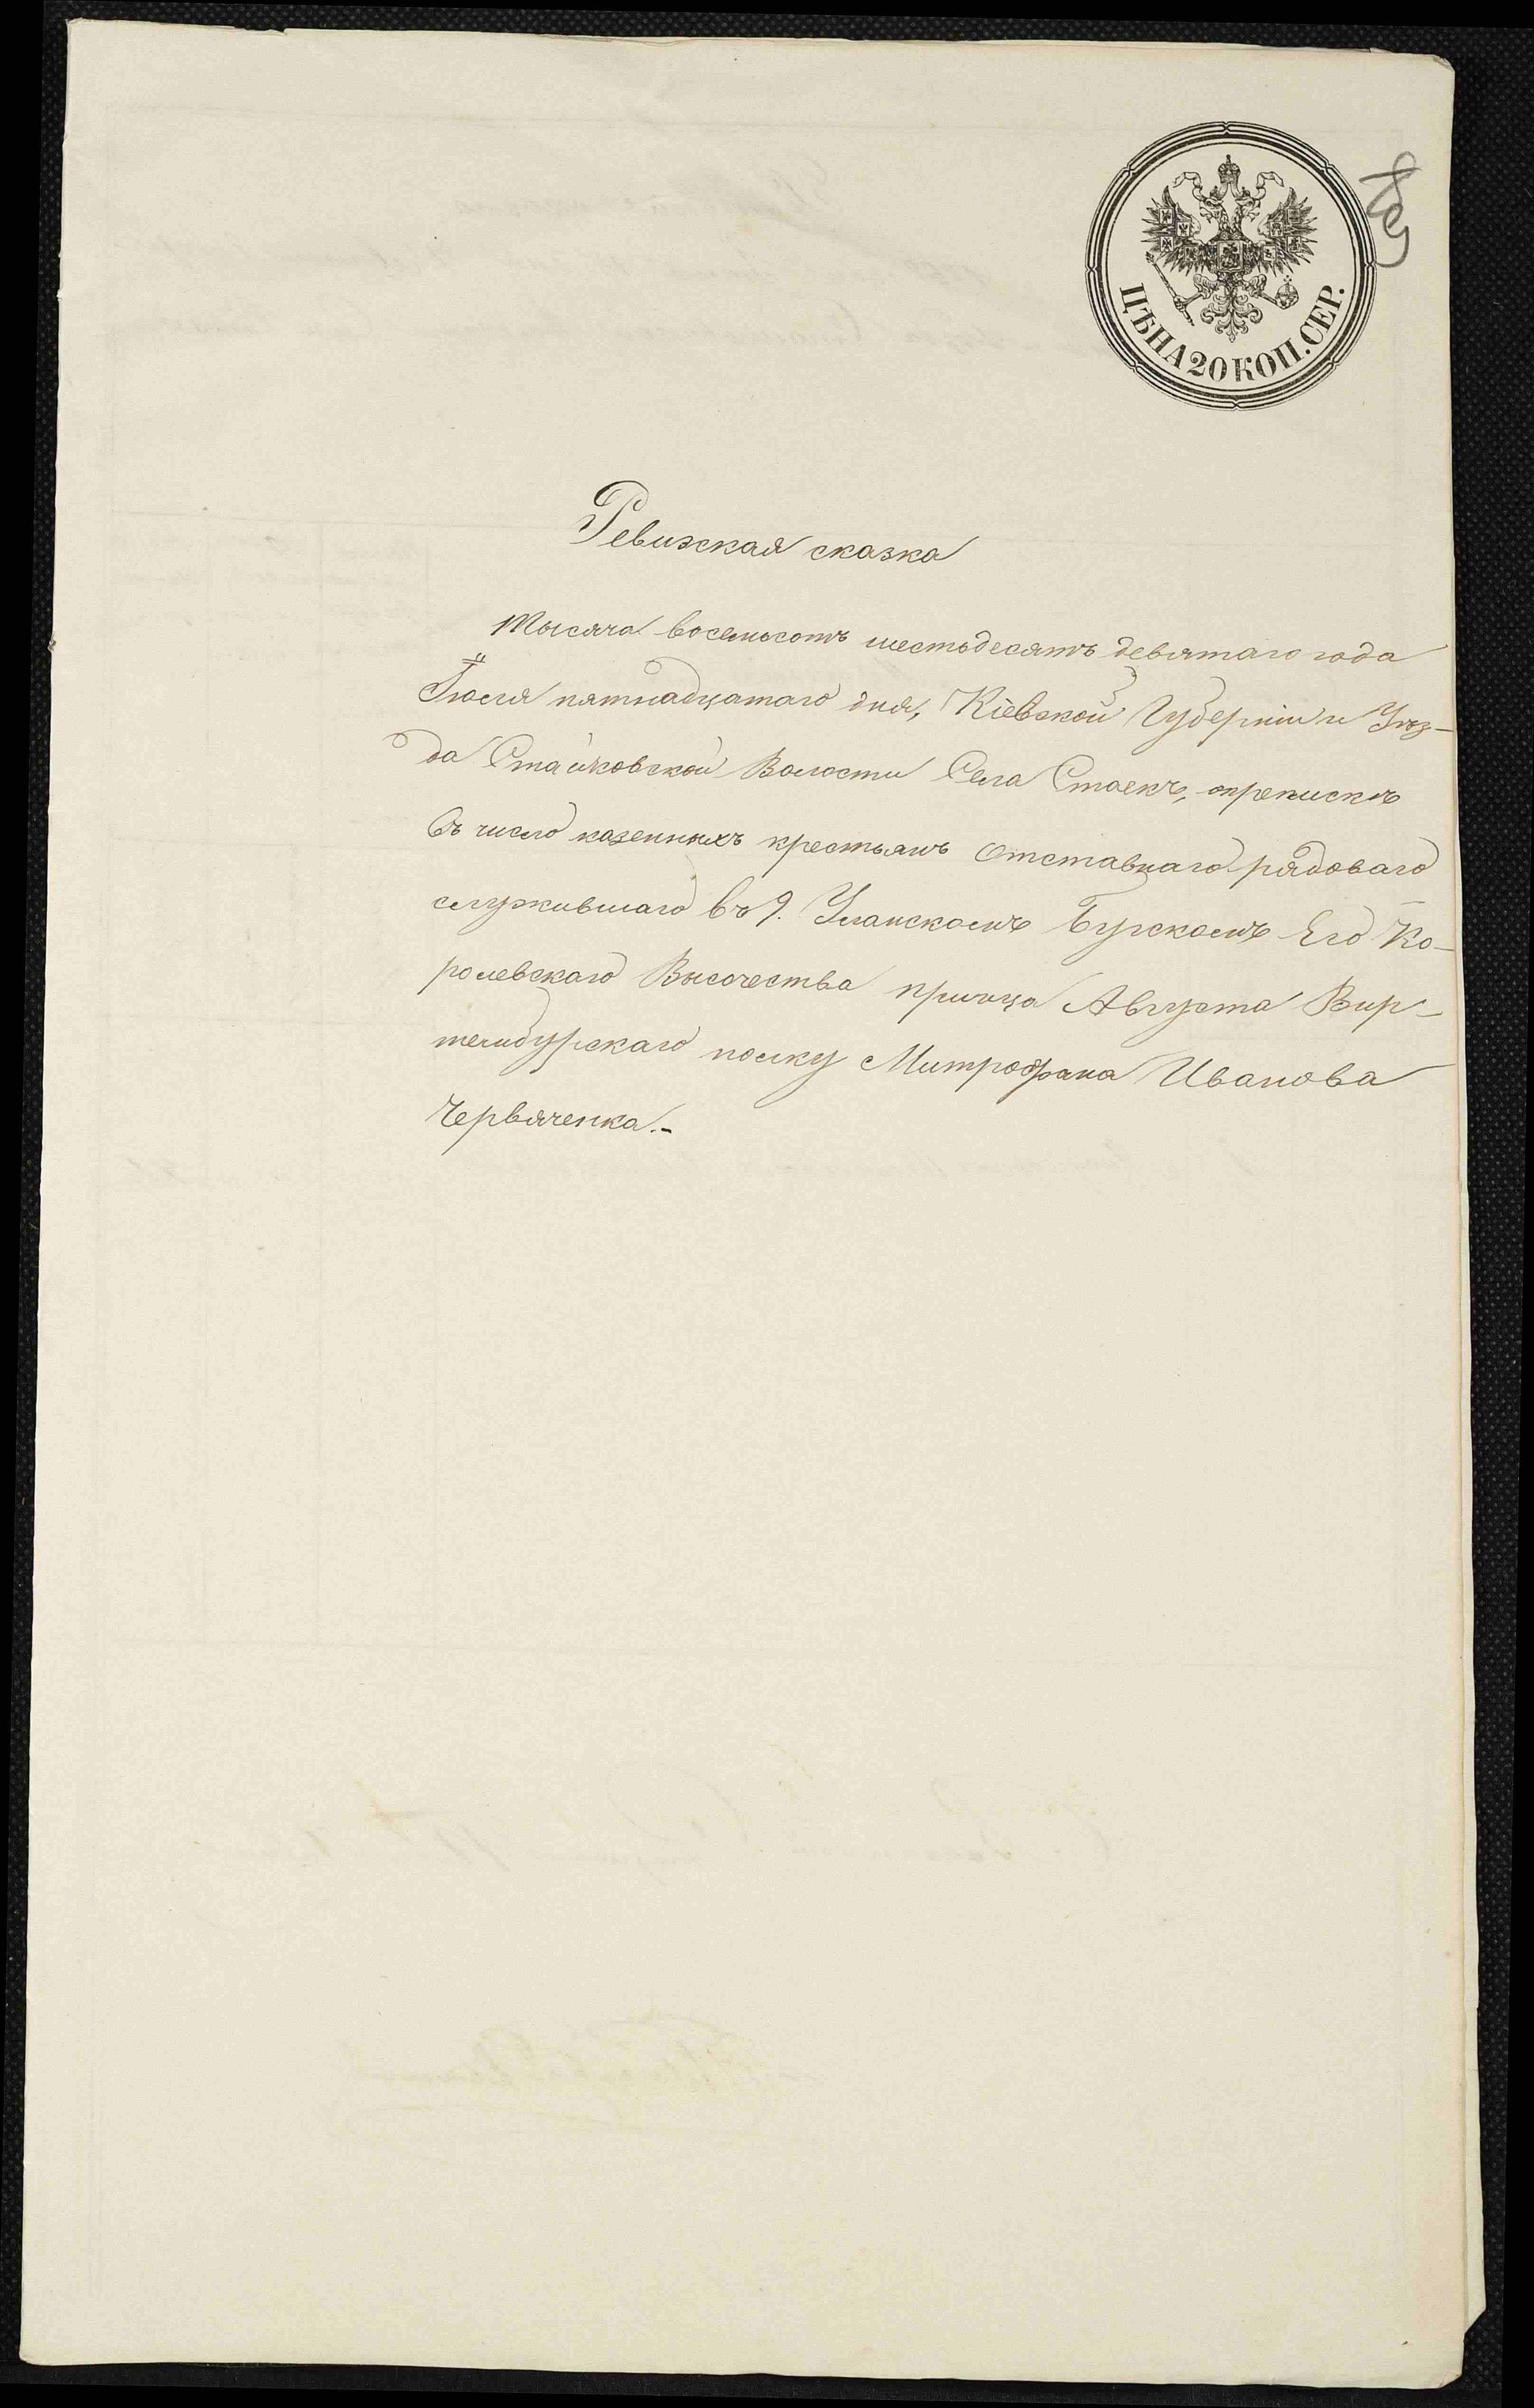 ЦѢНА 20 КОП. СЕР.
Ревизская сказка
тысяча восемьсотъ шестьдесятъ девятаго года
Іюля пятнадцатаго дня, Кіевской Губерніи и Уѣз-
да Стайковской Волости Села Стаекъ, о припискѣ
въ число казенныхъ крестьянъ отставнаго рядоваго
служившаго въ 9. Уланскомъ Бугскомъ Его Ко-
ролевскаго Высочества принца Августа Вир-
тембургскаго полку Митрофана Иванова
Червяченка.-